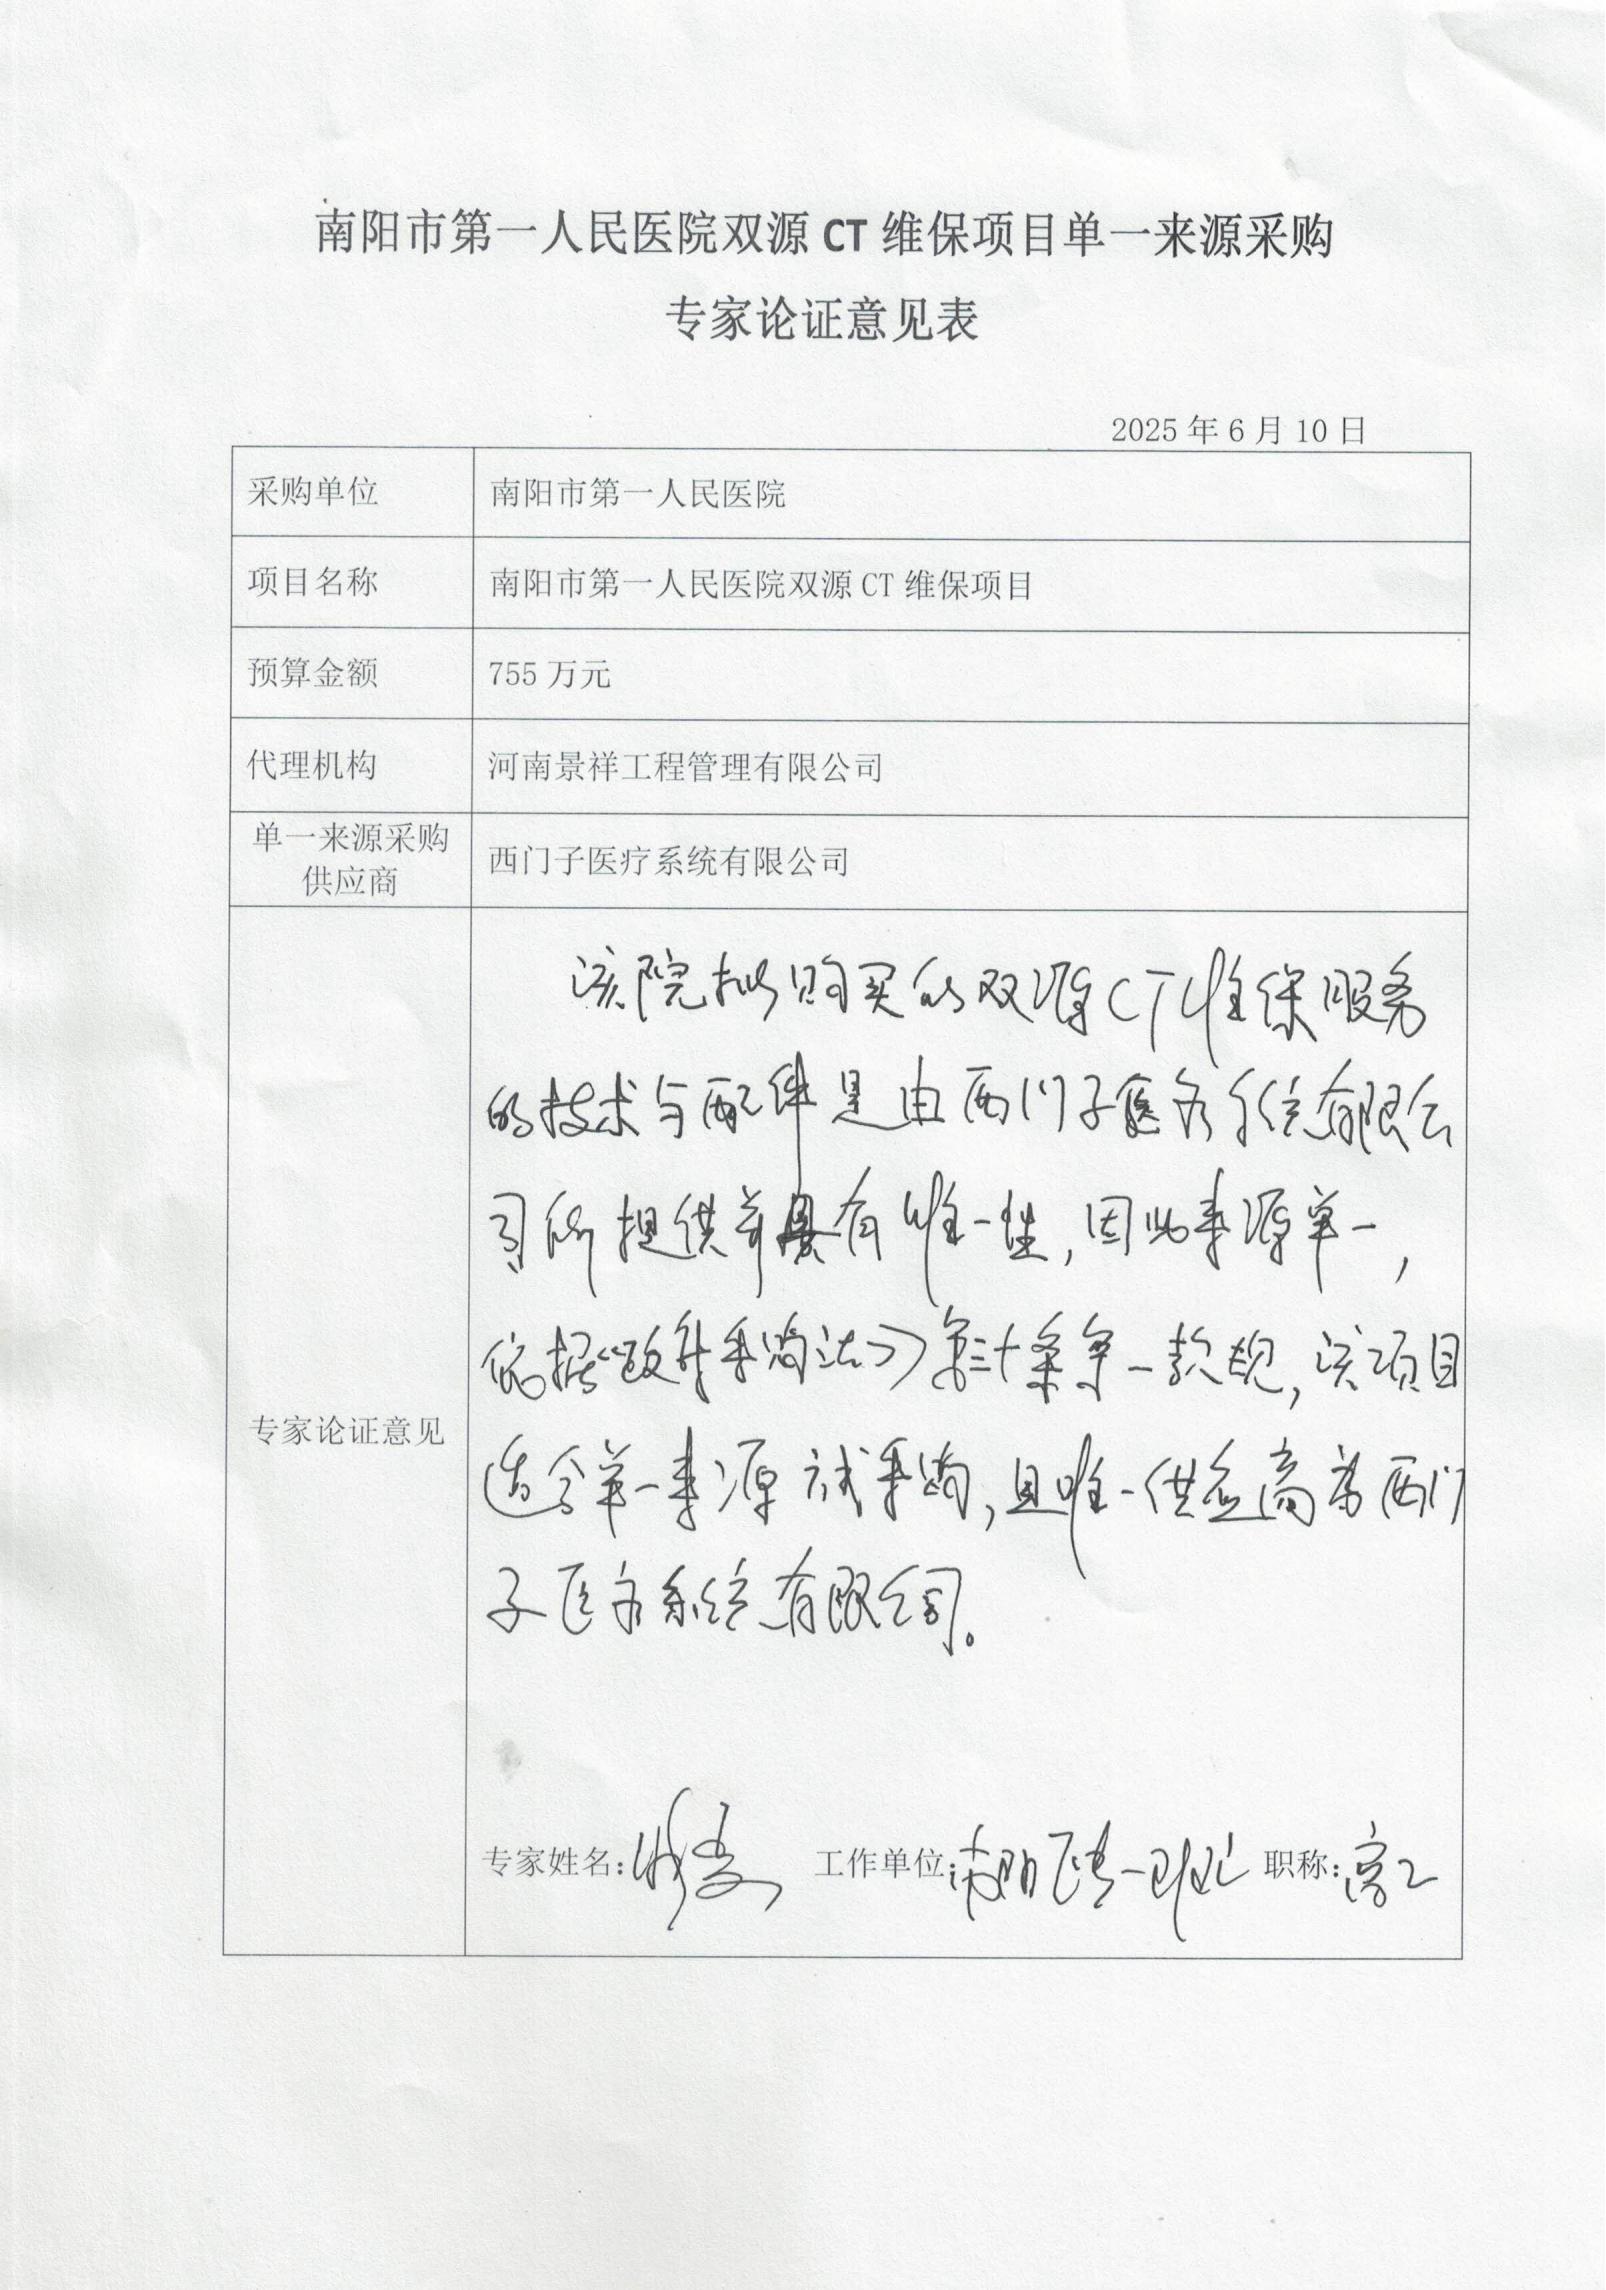 南阳市第一人民医院双源 CT 维保项目单一来源采购
专家论证意见表
2025 年 6 月 10 日
采购单位
南阳市第一人民医院
项目名称
南阳市第一人民医院双源 CT 维保项目
预算金额
755 万元
代理机构
河南景祥工程管理有限公司
单一来源采购
供应商
西门子医疗系统有限公司
专家论证意见
该院拟购买的双源CT维保服务
的技术与配件是由西门子医疗系统有限公
司所提供并具有唯一性,因此来源单一,
依据《政府采购法》第三十条第一款规,该项目
适合单一来源方式采购,且唯一供应商为西门
子医疗系统有限公司。
专家姓名:
工作单位:南阳医专一附院
职称:高工